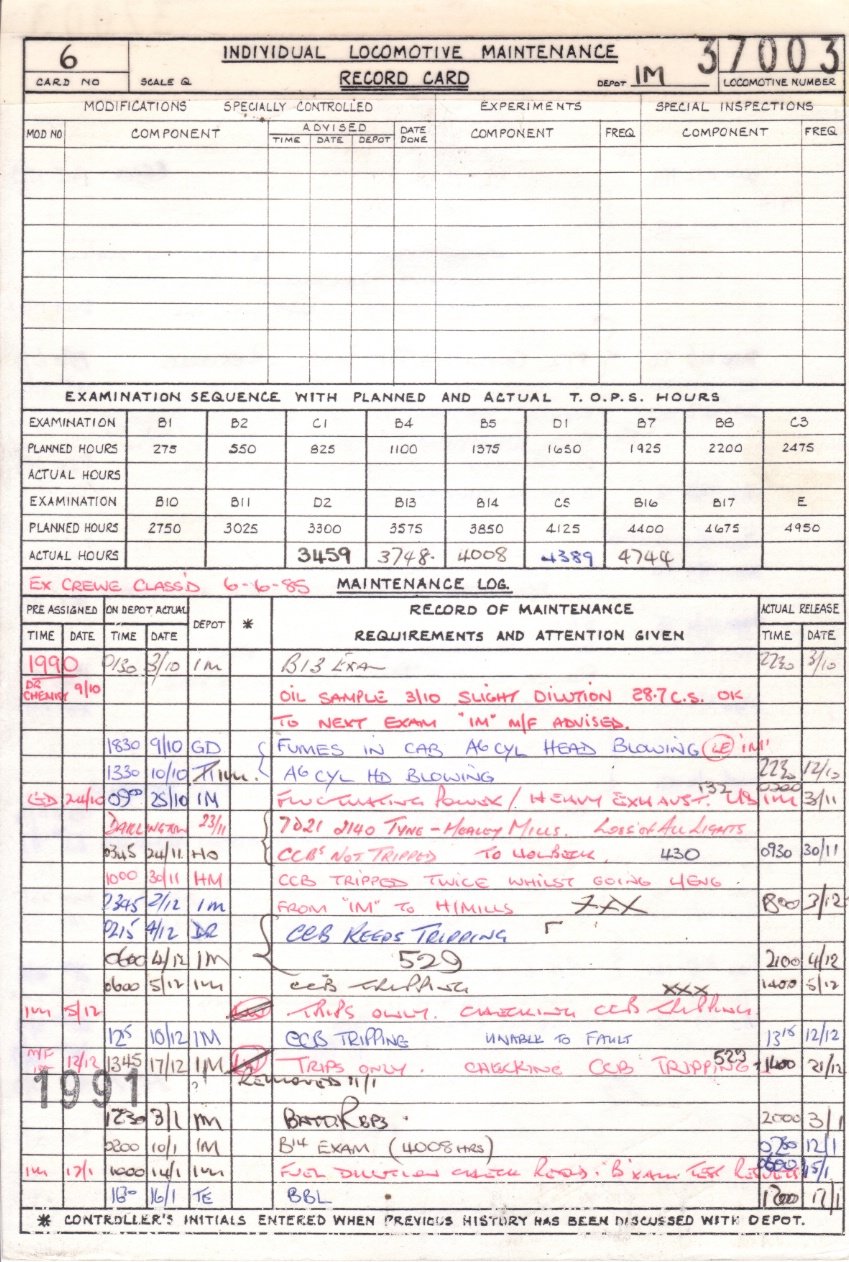 6 INDIVIDUAL LOCOMOTIVE MAINTENANCE 37003
CARD NO SCALE Q RECORD CARD DEPOT IM LOCOMOTIVE NUMBER
MODIFICATIONS SPECIALLY CONTROLLED EXPERIMENTS SPECIAL INSPECTIONS
MOD NO COMPONENT ADVISED DATE DONE COMPONENT FREQ COMPONENT FREQ
TIME DATE DEPOT
EXAMINATION SEQUENCE WITH PLANNED AND ACTUAL T.O.P.S. HOURS
EXAMINATION B1 B2 C1 B4 B5 D1 B7 B8 C3
PLANNED HOURS 275 550 825 1100 1375 1650 1925 2200 2475
ACTUAL HOURS
EXAMINATION B10 B11 D2 B13 B14 C5 B16 B17 E
PLANNED HOURS 2750 3025 3300 3575 3850 4125 4400 4675 4950
ACTUAL HOURS 3459 3748. 4008 4389 4744
EX CREWE CLASS'D 6-6-85 MAINTENANCE LOG.
PRE ASSIGNED ON DEPOT ACTUAL DEPOT * RECORD OF MAINTENANCE ACTUAL RELEASE
TIME DATE TIME DATE REQUIREMENTS AND ATTENTION GIVEN TIME DATE
1990 0130 3/10 IM B13 EXAM 2230 3/10
DR CHEMIST 9/10 OIL SAMPLE 3/10 SLIGHT DILUTION 28.7 C.S. OK
TO NEXT EXAM "IM" M/F ADVISED.
1830 9/10 GD FUMES IN CAB A6 CYL HEAD BLOWING LE "IM"
1330 10/10 IM. A6 CYL HD BLOWING 2230 12/10
GD 24/10 0900 25/10 IM FLUCTUATING POWER / HEAVY EXHAUST. 132 IM 3/11
DARLINGTON 23/11 7D21 2140 TYNE - HEALEY MILLS. LOSS OF ALL LIGHTS
0345 24/11 HO CCB'S NOT TRIPPED TO HOLBECK. 430 0930 30/11
1000 30/11 HM CCB TRIPPED TWICE WHILST GOING L/ENG.
2345 2/12 IM FROM "IM" TO H/MILLS XXX 1800 3/12
0215 4/12 DR CCB KEEPS TRIPPING
0600 4/12 IM 529 2100 4/12
0600 5/12 IM CCB TRIPPING XXX 1400 5/12
IM 5/12 TRIPS ONLY. CHECKING CCB TRIPPING
10/12 IM CCB TRIPPING UNABLE TO FAULT 1315 12/12
M/F 12/12 1345 17/12 IM TRIPS ONLY. CHECKING CCB TRIPPING 529 1400 21/12
1991 REMOVED 11/1
1230 3/1 IM BATT. REPS. 2000 3/1
0200 10/1 IM B14 EXAM (4008 HRS) 12/1
IM 12/1 1000 14/1 IM FUEL DILUTION CHECK REQD. 'B' EXAM TEST RESULTS 15/1
16/1 TE BBL 1700 17/1
* CONTROLLER'S INITIALS ENTERED WHEN PREVIOUS HISTORY HAS BEEN DISCUSSED WITH DEPOT.